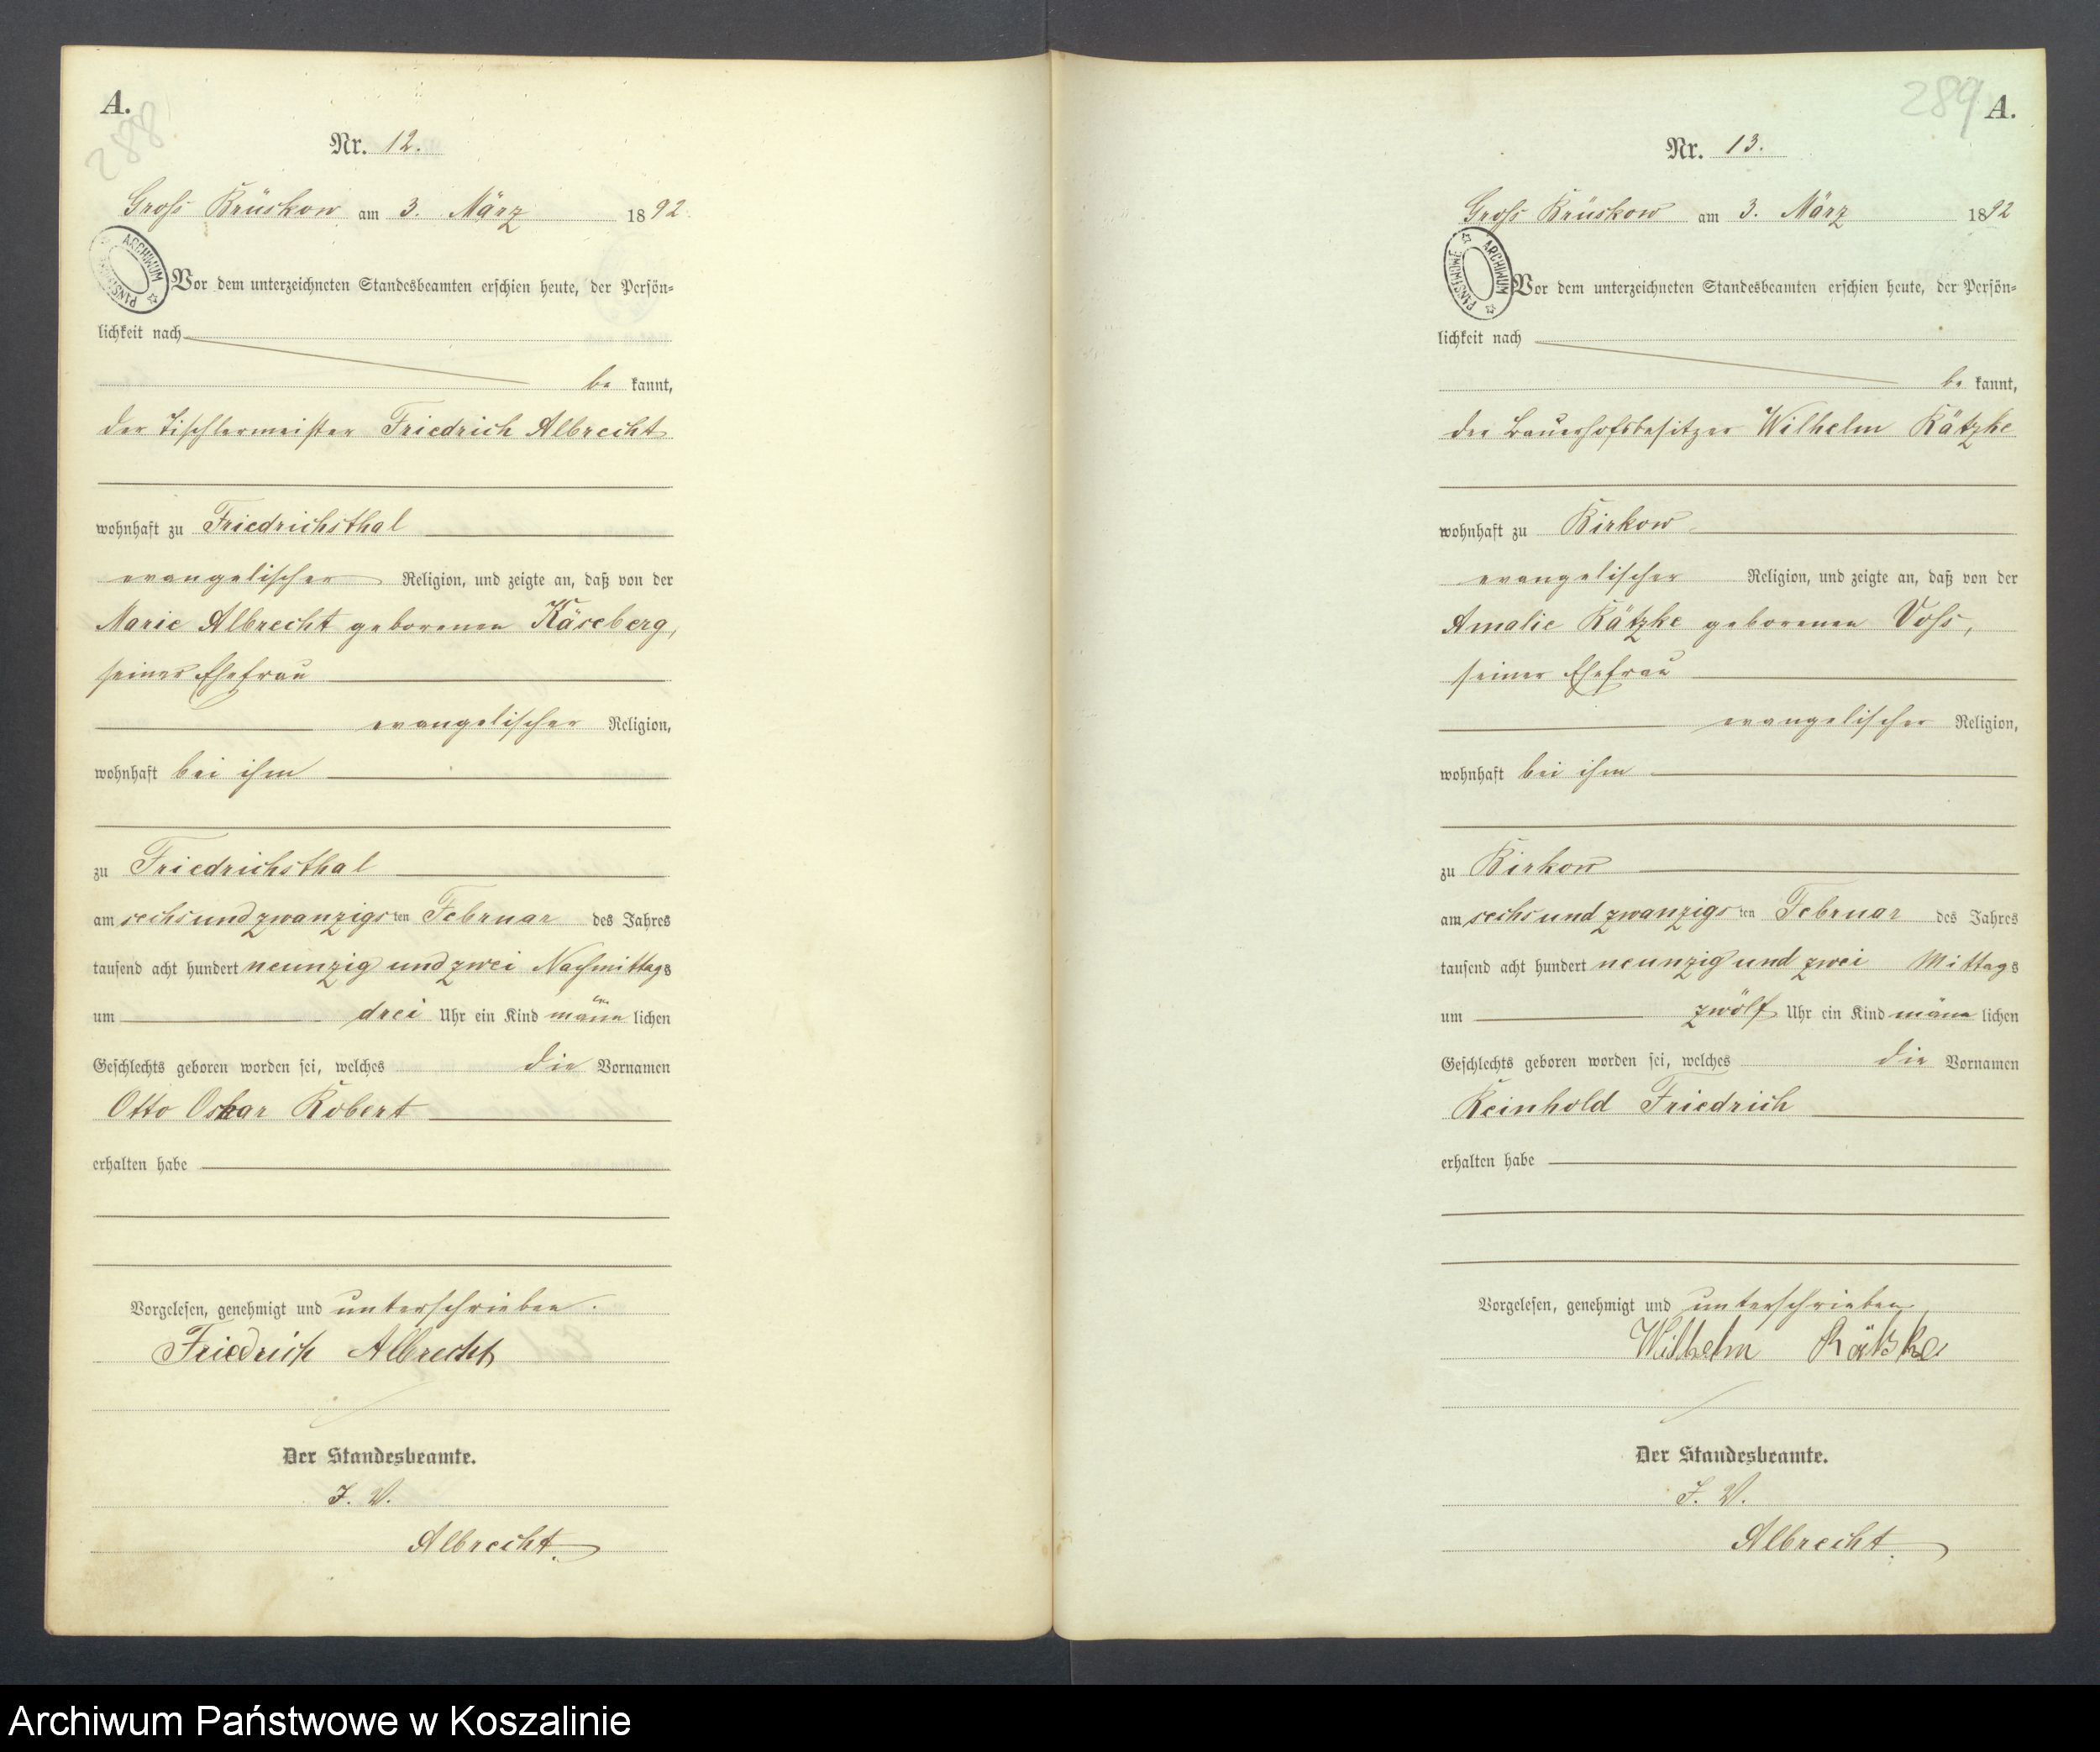 A.
288
Nr. 12.
Gross Brüskow am 3. März 1892.
ARCHIWUM PAŃSTWOWE
Vor dem unterzeichneten Standesbeamten erschien heute, der Persön=
lichkeit nach
be kannt,
der Tischlermeister Friedrich Albrecht
wohnhaft zu Friedrichsthal
evangelischer Religion, und zeigte an, daß von der
Marie Albrecht geborenen Käseberg,
seiner Ehefrau
evangelischer Religion,
wohnhaft bei ihm
zu Friedrichsthal
am sechsundzwanzigsten Februar des Jahres
tausend acht hundert neunzig und zwei Nachmittags
um drei Uhr ein Kind männlichen
Geschlechts geboren worden sei, welches die Vornamen
Otto Oskar Robert
erhalten habe
Vorgelesen, genehmigt und unterschrieben.
Friedrich Albrecht
Der Standesbeamte.
J. V.
Albrecht.
289
A.
Nr. 13.
Gross Brüskow am 3. März 1892
ARCHIWUM PAŃSTWOWE
Vor dem unterzeichneten Standesbeamten erschien heute, der Persön=
lichkeit nach
be kannt,
der Bauerhofsbesitzer Wilhelm Rätzke
wohnhaft zu Birkow
evangelischer Religion, und zeigte an, daß von der
Amalie Rätzke geborenen Voss,
seiner Ehefrau
evangelischer Religion,
wohnhaft bei ihm
zu Birkow
am sechsundzwanzigsten Februar des Jahres
tausend acht hundert neunzig und zwei Mittags
um zwölf Uhr ein Kind männlichen
Geschlechts geboren worden sei, welches die Vornamen
Reinhold Friedrich
erhalten habe
Vorgelesen, genehmigt und unterschrieben
Wilhelm Rätzke
Der Standesbeamte.
J. V.
Albrecht.
Archiwum Państwowe w Koszalinie